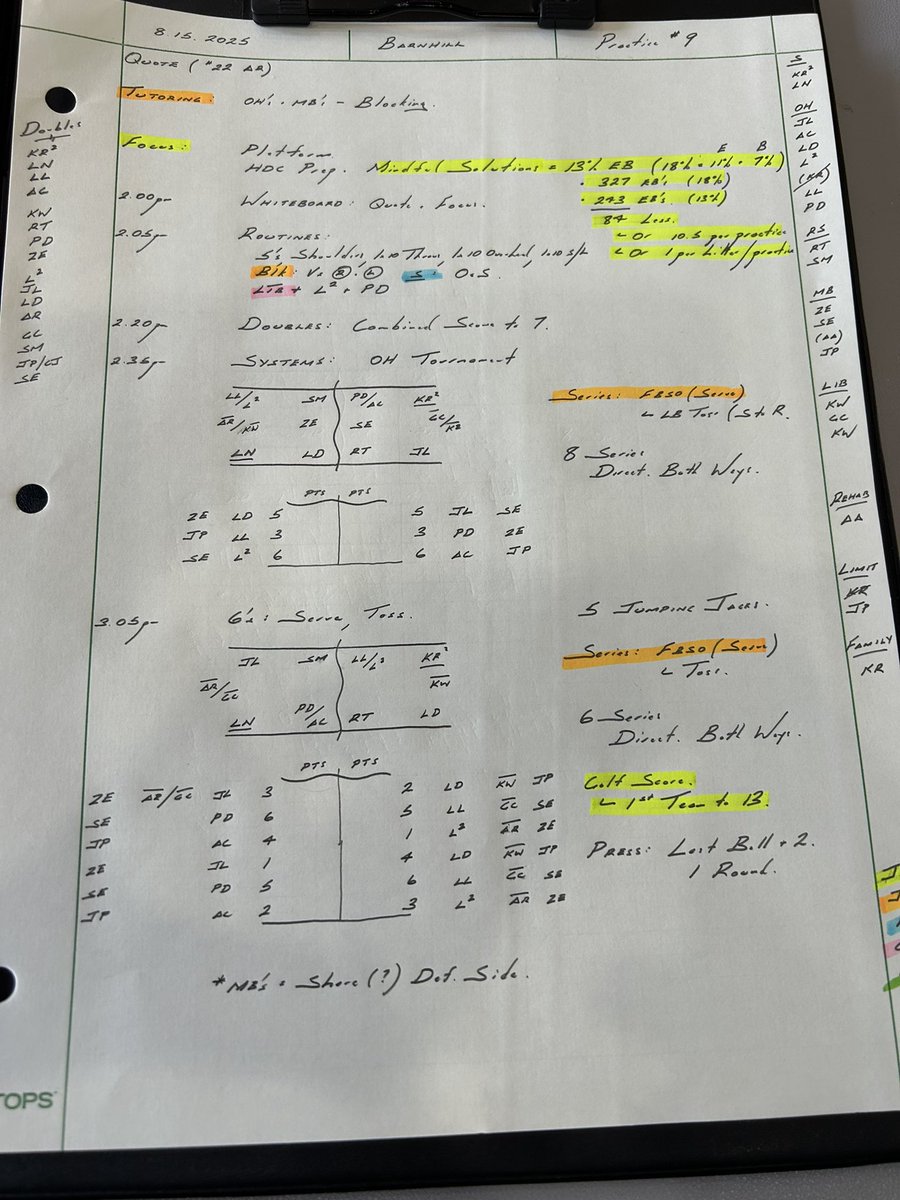 8.15.2025 BARNHILL Practice #9
QUOTE (#22 AR)
TUTORING: OH's + MB's - Blocking.
FOCUS: Platform
HDC Prep. Mindful Solutions = 13% EB (18% = 11% + 7%)
E B
• 327 EB's (18%)
• 243 EB's (13%)
84 Less.
↳ Or 10.5 per practice
↳ Or 1 per hitter/practice
2.00pm WHITEBOARD: Quote. Focus.
2.05pm ROUTINES:
S's
B/R: V. R. L S: O.S.
LIB + L² + PD
2.20pm DOUBLES: Combined Score to 7.
2.35pm SYSTEMS: OH Tournament
LL/L² SM PD/AC KR²
AR/KW ZE SE GC/KR
LN LD RT JL
Series: FBSO (Serve)
↳ LB Toss (S to R.
8 Series
Direct. Both Ways.
PTS PTS
ZE LD 5 5 JL SE
JP LL 3 3 PD ZE
SE L² 6 6 AC JP
3.05pm 6's: Serve, Toss.
5 JUMPING JACKS.
JL SM LL/L² KR²
AR/GC KW
LN PD/AC RT LD
Series: FBSO (Serve)
↳ Toss.
6 Series
Direct. Both Ways.
PTS PTS
ZE AR/GC JL 3 2 LD KW JP
SE PD 6 5 LL GC SE
JP AC 4 1 L² AR ZE
ZE JL 1 4 LD KW JP
SE PD 5 6 LL GC SE
JP AC 2 3 L² AR ZE
Golf Score.
↳ 1st Team to 13.
PRESS: Last Ball + 2.
1 Round.
*MB's = Share (?) Def. Side.
Doubles
KR²
LN
LL
AC
KW
RT
PD
ZE
L²
JL
LD
AR
GC
SM
JP/CJ
SE
S
KR²
LN
OH
JL
AC
LD
L²
(KR)
LL
PD
RS
RT
SM
MB
ZE
SE
(AA)
JP
LIB
KW
GC
KW
REHAB
AA
LIMIT
KR
JP
FAMILY
KR
TOPS